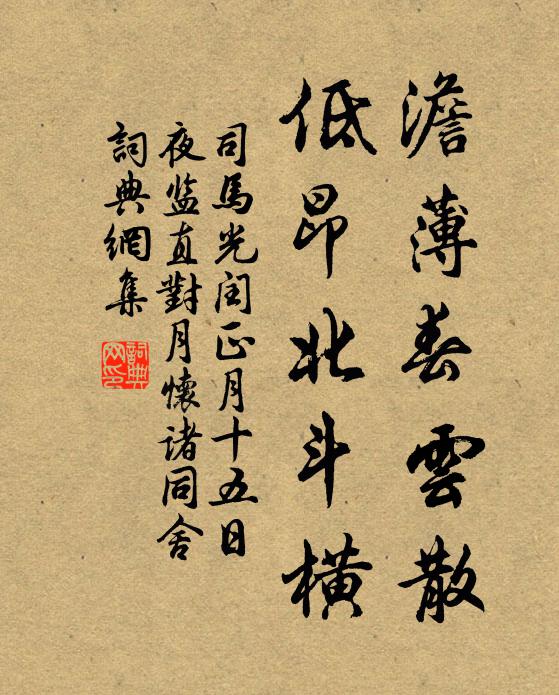 澹薄春雲散
低昂北斗橫
司馬光閏正月十五日
夜监直對月懷诸同舍
詞典網集
詞典網印